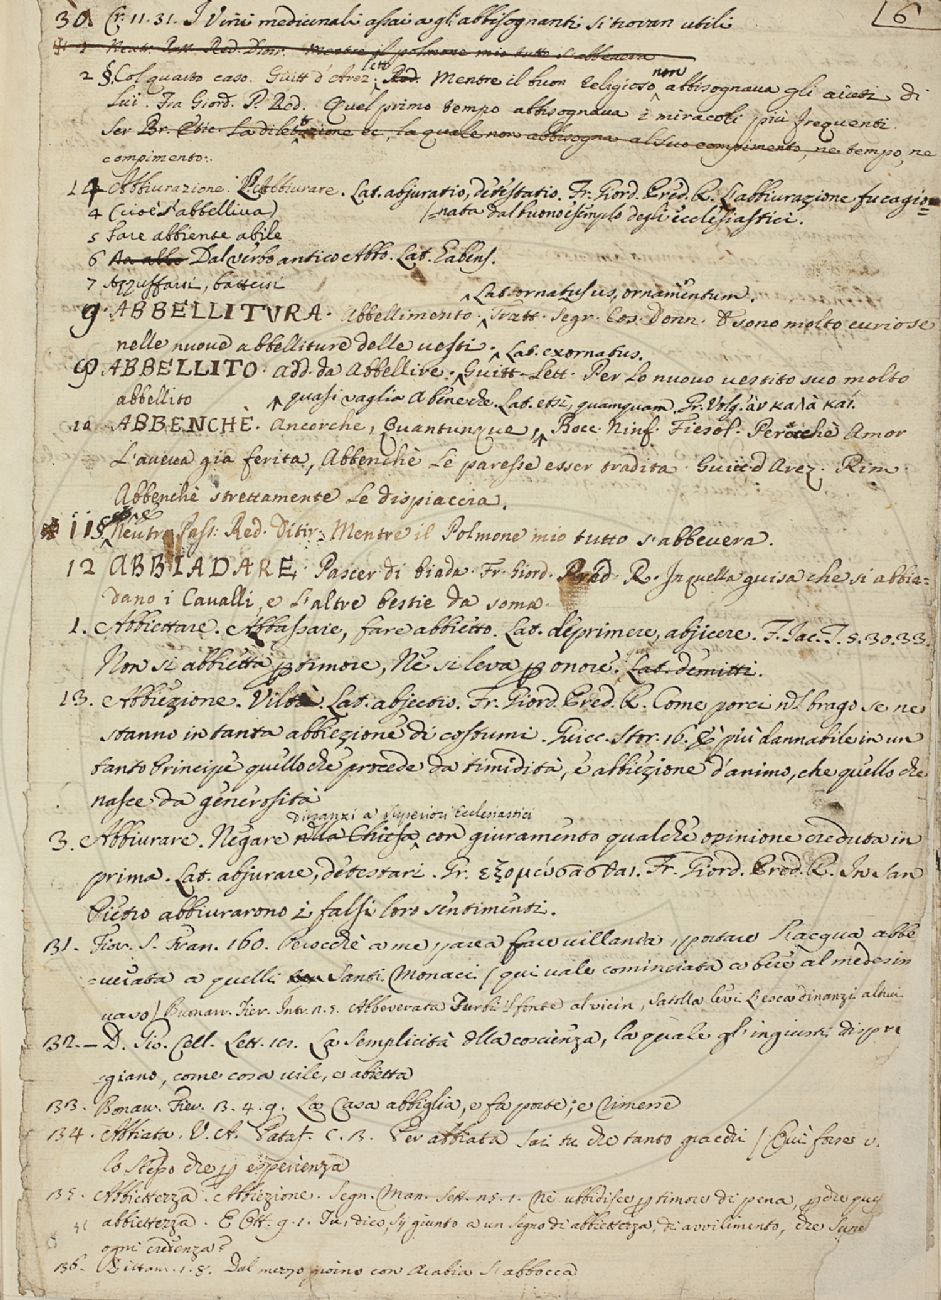 6
30. Cr. 11. 31. I Vini medicinali assai a gl'abbisognanti si trovan utili
Neutr. Pass. Red. Ditir. Mentre il polmone mio tutto s'abbevera
2 § Col quarto caso. Guitt. d'Arez. lett. Rod. Mentre il buon religioso non abbisognava gli aiuti di
Lui. Fra Giord. P. Red. Quel primo tempo abbisognava i miracoli più frequenti.
Ser Br. Etic. La dilettazione ec. la quale non abbisogna al suo compimento, ne tempo, ne
compimento.
14 Abbiurazione. L'Abbiurare. Lat. abjuratio, detestatio. Fr. Giord. Pred. R. L'abbiurazione fu cagio=
4 (cioè s'abbelliva) /nata dal buono esemplo degli ecclesiastici.
5 Fare abbiente abile
6 Dal verbo antico Abbo. Lat. habens.
7 Azzuffarsi, battersi
^Lat. ornatus us, ornamentum.
9. ABBELLITVRA. Abbellimento. ^Tratt. Segr. Cos. Donn. E sono molto curiose
nelle nuove abbelliture delle vesti. ^Lat. exornatus.
9 ABBELLITO. add. da Abbellire. ^Guitt. Lett. Per Lo nuovo vestito suo molto
abbellito ^quasi vaglia A bene che. Lat. etsi, quamquam. Gr. Volg. ἂν καλὰ καὶ.
10 ABBENCHÈ. Ancorche, Quantunque, ^ Bocc. Ninf. Fiesol. Perocchè Amor
L'aveva gia ferita, Abbenchè Le paresse esser tradita. Guitt. d'Arez. Rim.
Abbenchè strettamente Le dispiaccia.
* 11 § Neutr. Pass. Red. Ditir. Mentre il Polmone mio tutto s'abbevera.
12 ABBIADARE. Pascer di biada. Fr. Giord. Pred. R. In quella guisa che si abbia=
dano i Cavalli, e L'altre bestie da soma.
1. Abbiettare. Abbassare, fare abbietto. Lat. deprimere, abjicere. F. Jac. T. 5. 30. 33.
Non si abbietta p timore, Nè si leva p onore. Lat. demitti.
13. Abbiezione. Viltà. Lat. abjectio. Fr. Giord. Pred. R. Come porci nel brago se ne
stanno in tanta abbiezione di costumi. Guicc. Stor. 16. È più dannabile in un
tanto Principe quello che procede da timidità, e abbiezione d'animo, che quello che
nasce da generosità
dinanzi a' superiori Ecclesiastici
3. Abbiurare. Negare nella Chiesa ^ con giuramento qualche opinione creduta in
prima. Lat. abjurare, detestari. Gr. ἐξομόσασθαι. Fr. Giord. Pred. R. In San
Pietro abbiurarono i falsi loro sentimenti.
131. Fior. S. Fran. 160. Perocchè a me parea fare villania, portare L'acqua abbe
=verata a quelli Santi Monaci (qui vale cominciata a bere al medesim
vaso) Buonarr. Fier. Intr. n. 5. Abbeverata Turbi il fonte al vicin, satolla levi L'esca dinanzi altrui
132. — D. Gio. Cell. Lett. 101. La semplicità della coscienza, la quale gl'ingiusti dispre
giano, come cosa vile, e abietta
133. Bonarr. Fier. 3. 4. 9. La Casa abbiglia, e fa porte, e rimesse
134. Abbiata. V. A. Pataf. c. 3. Per abbiata sai tu che tanto gracchi (Qui forse v.
lo stesso che p esperienza
135. Abbiettezza. Abbiezione. Segn. Man. Sett. n. 5. 1. Nè ubbidisce p timore di pena, p che
abbiettezza. E Ott. 9. 1. Tu, dico, sì giunto a un segno di abbiettezza, di avvilimento, che supe
ogni credenza?
136. Dittam. 1. 8. Dal mezzo giorno con Arabia s'abbocca